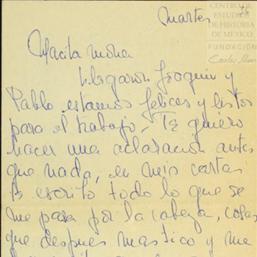 Martes
CENTRO DE
ESTUDIOS
DE HISTORIA
DE MEXICO
FUNDACIÓN
Carlos Slim
Llegaron Joaquin y
Pablo estamos felices y listos
para el trabajo, Te quiero
hacer una aclarasion antes
que nada, en mis cartas
escrito todo lo que se
me pasa por la cabeza, cosas
que despues mastico y me